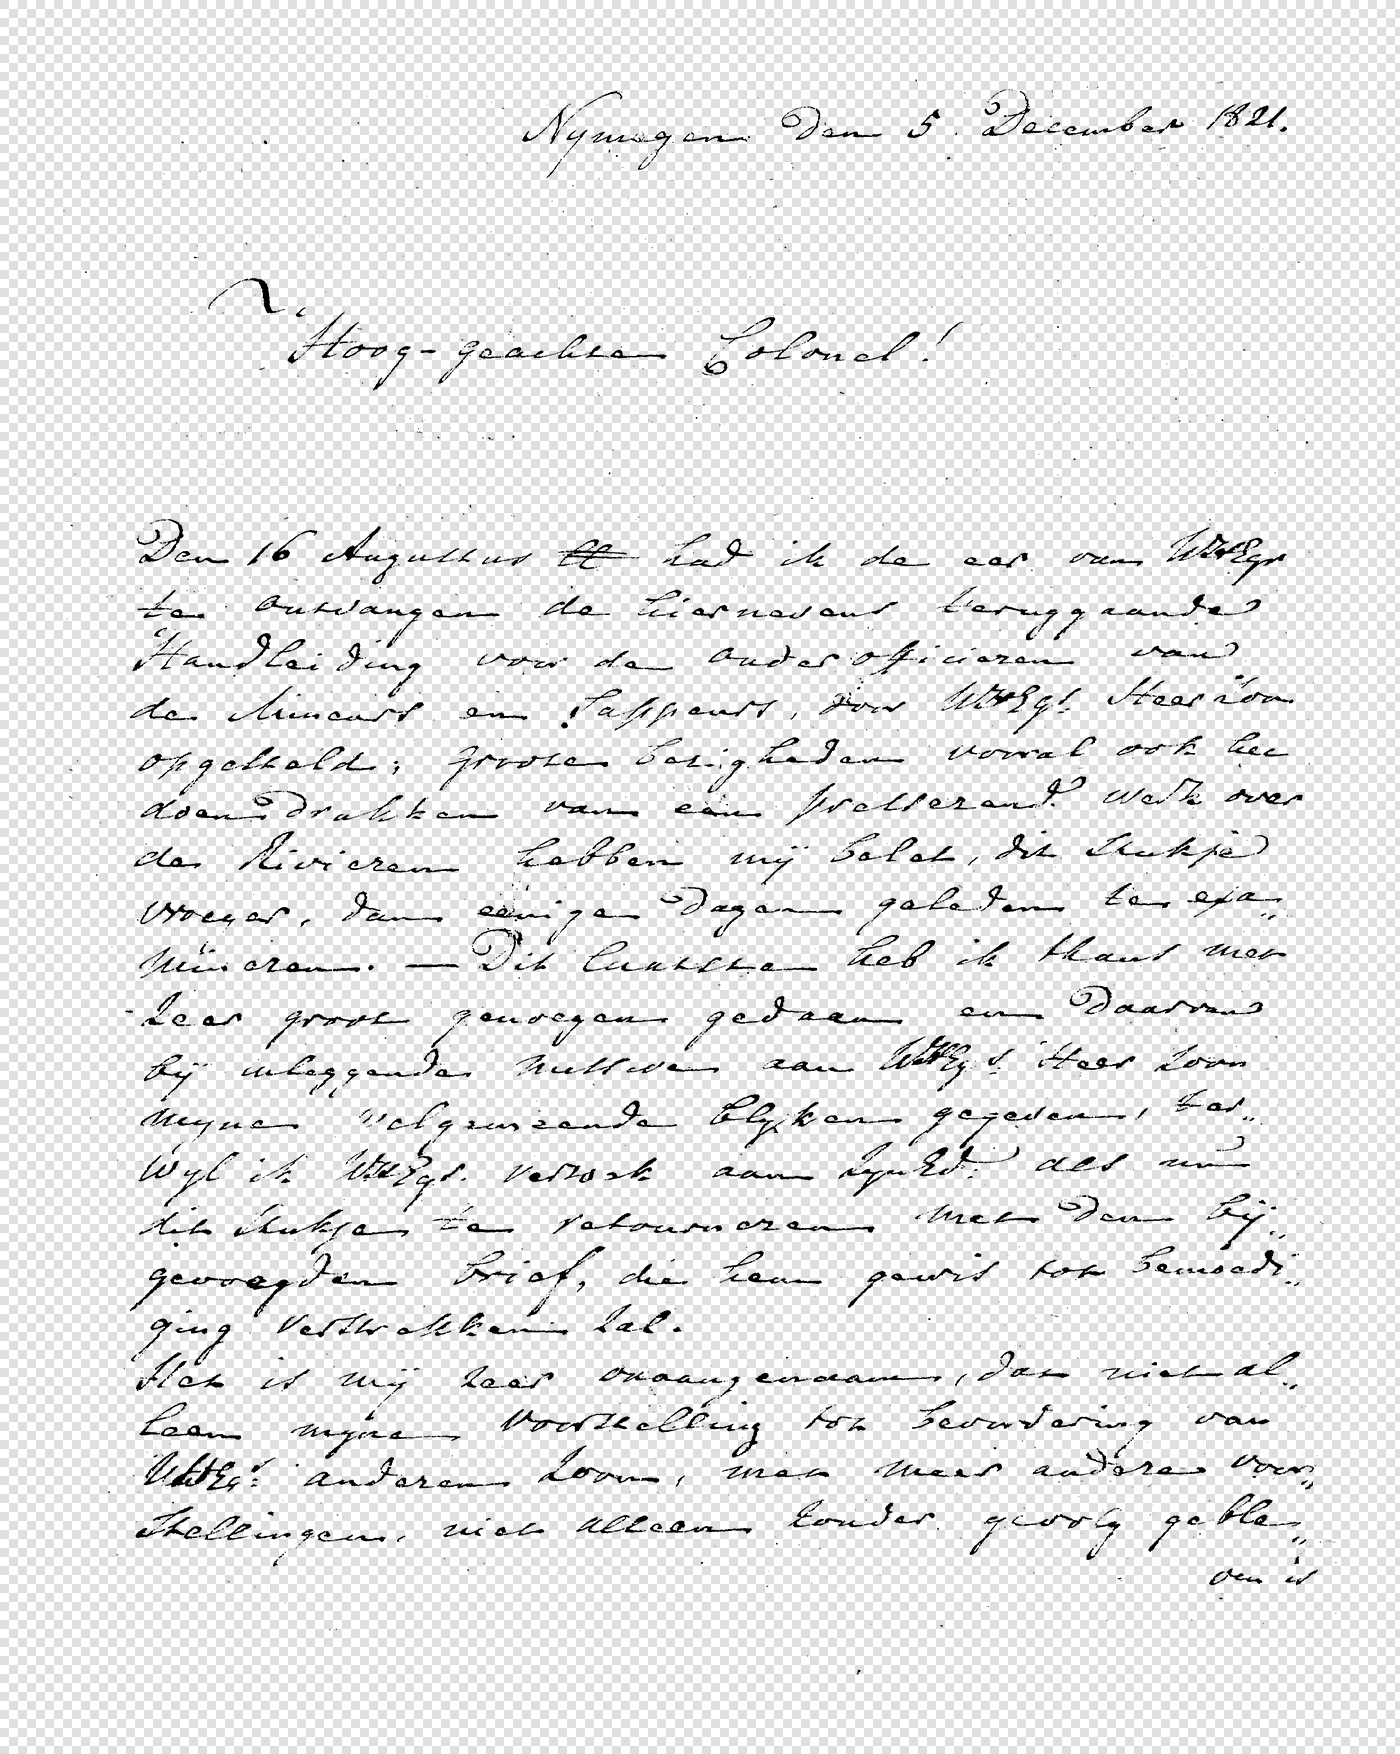 Nymegen den 5 December 1821.
Hoog-geachten Colonel!
Den 16 Augustus ll had ik de eer van WHEgs
te ontvangen de hiernevens teruggaande
Handleiding voor de onderofficieren van
de Mineurs en Sappeurs, door WHEgs Heer zoon
opgesteld; groote bezigheden vooral ook het
doen drukken van een presserend werk over
de Rivieren hebben mÿ belet, dit stukje
vroeger, dan eenige dagen geleden te exa„
mineren. — Dit laatste heb ik thans met
zeer groot genoegen gedaan en daarvan
bÿ inleggende missive aan WHEgs Heer zoon
myne welgemeende blyken gegeven, ter„
wyl ik WHEgs. verzoek aan ZynEd: als nu
dit stukje te retourneren met den bÿ„
gevoegden brief, die hem gewis tot bemoedi„
ging verstrekken zal.
Het is mÿ zeer onaangenaam, dat niet al„
leen myne voorstelling tot bevordering van
WHEgs: anderen zoon, met meer andere voor„
stellingen, niet alleen zonder gevolg geble„
ven is